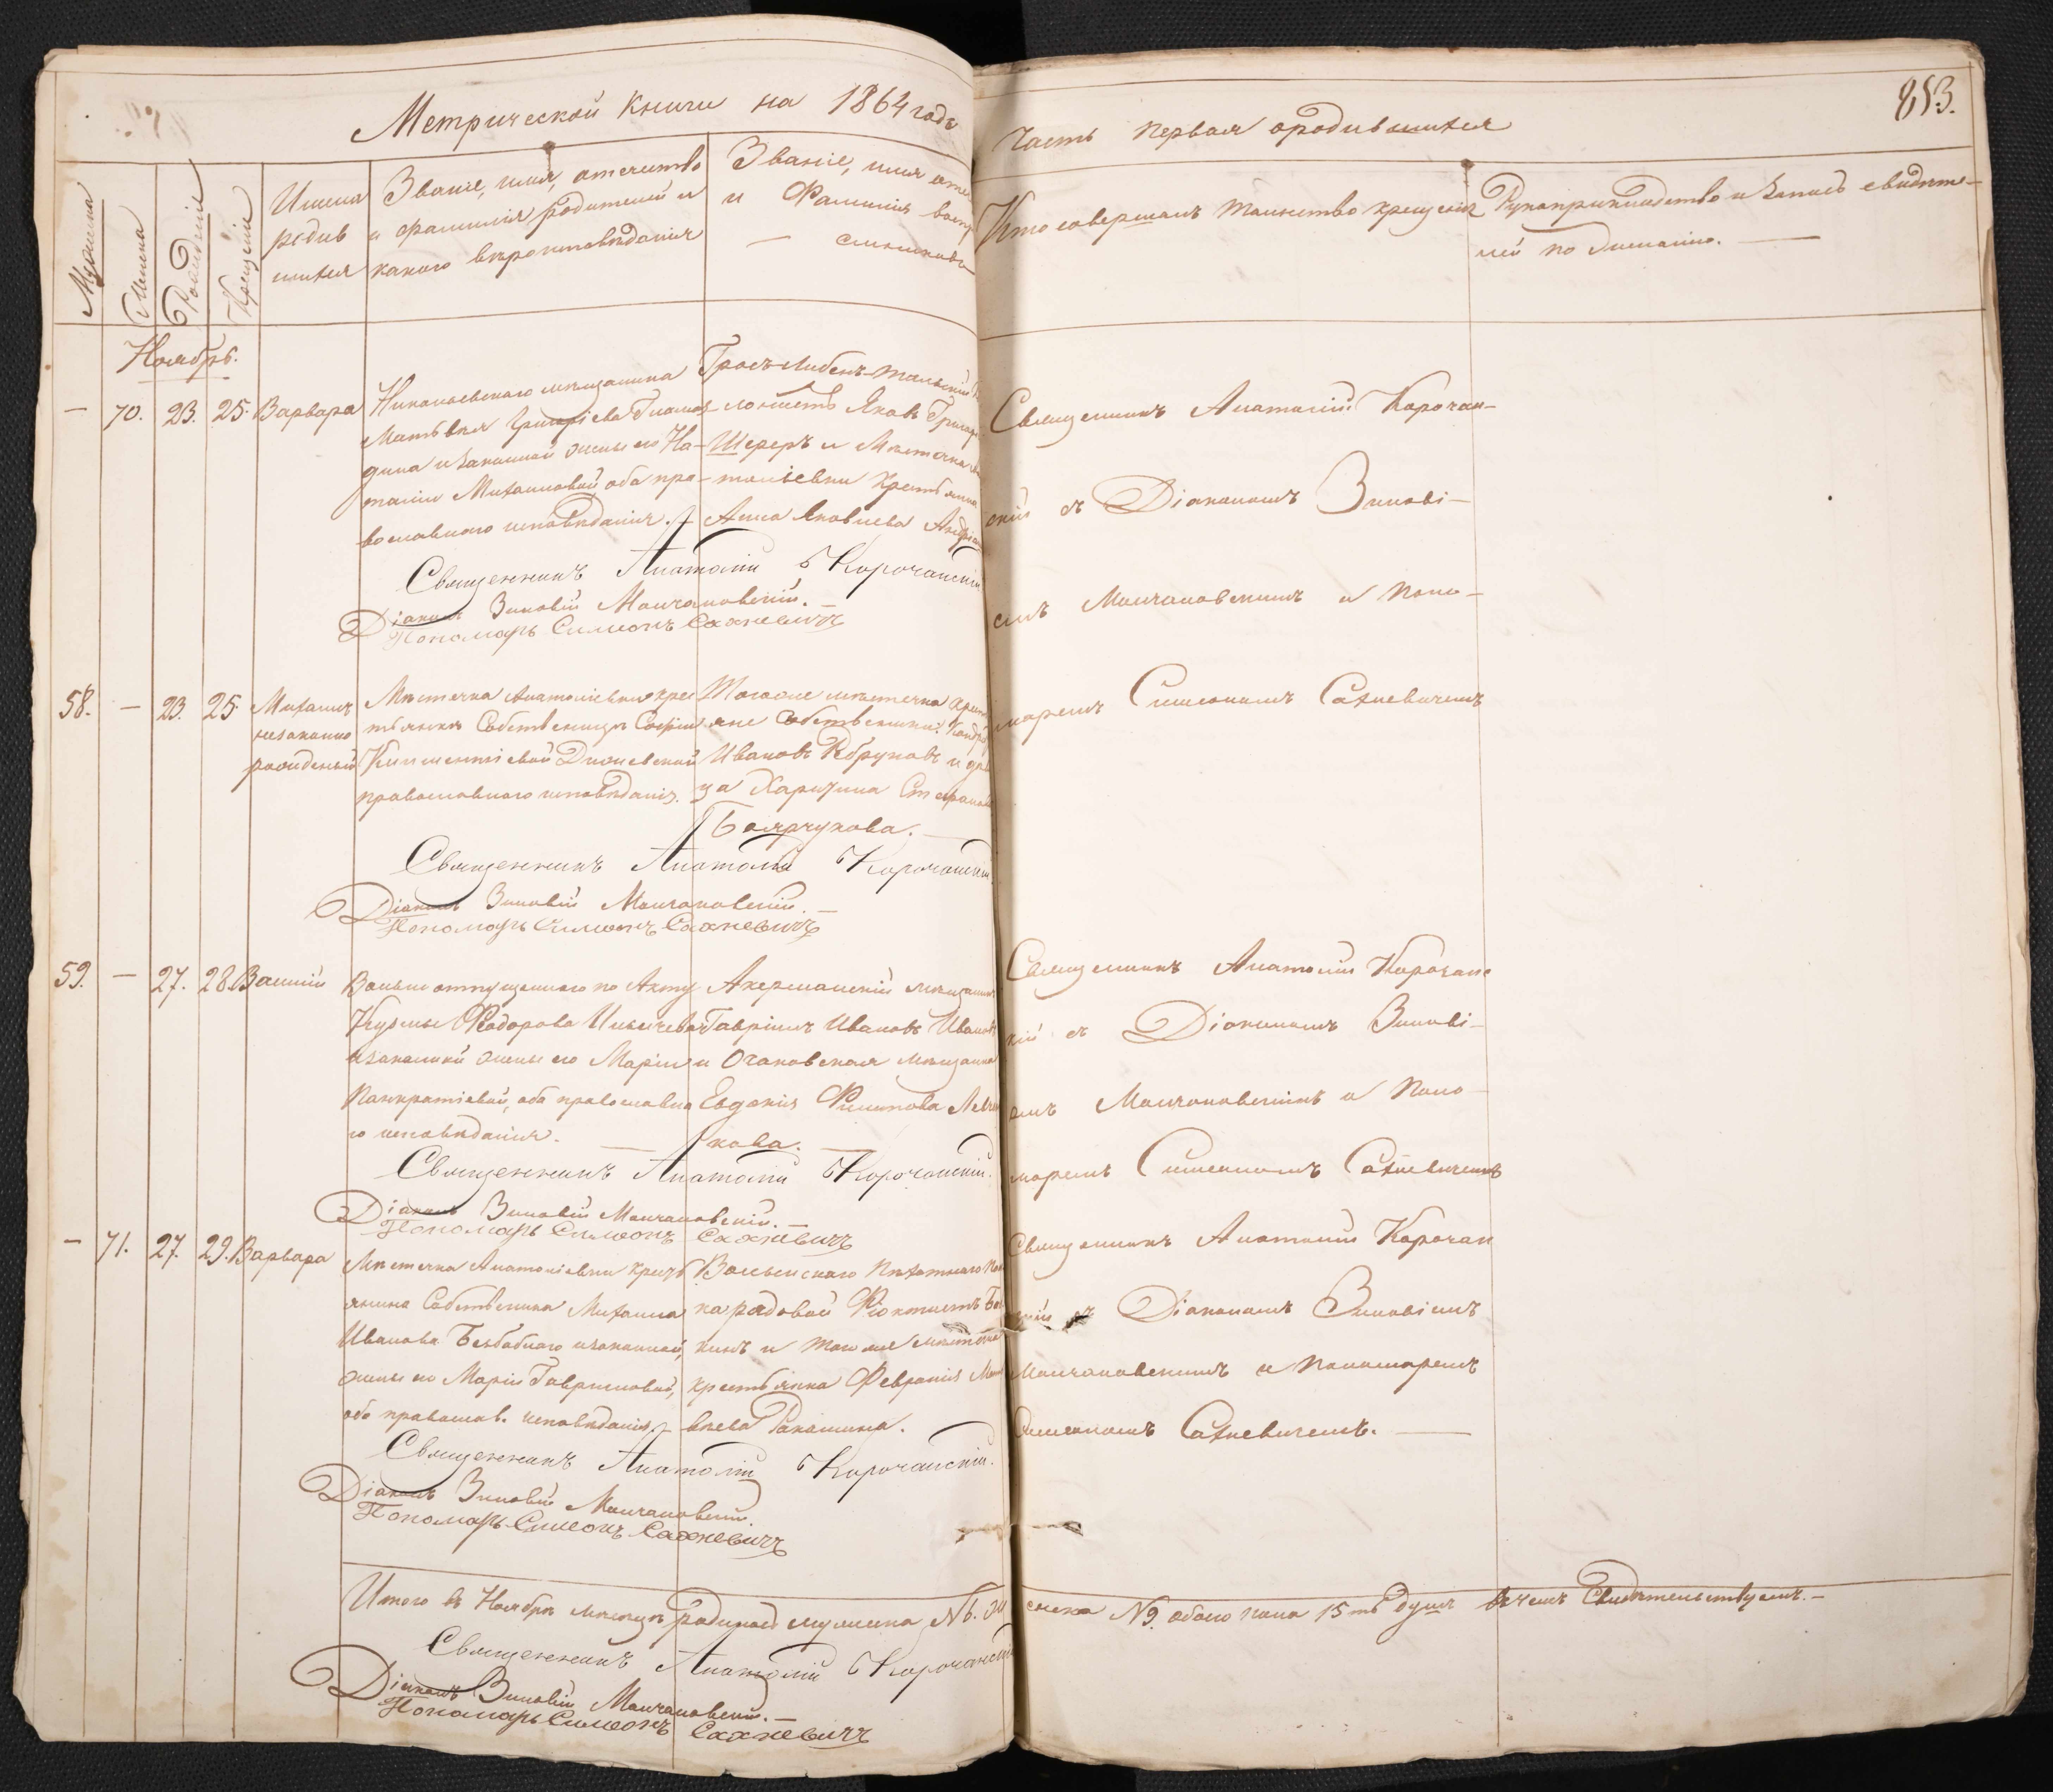 Метрической книги на 1864 годъ
часть первая о родившихся
853.
Мужеска
Женска
Рожденія
Крещенія
Имена родив шихся
Званіе, имя, отечество и фамилія родителей и какого вероисповѣданія
Званіе, имя отче и Фамилія воспр — емниковъ
Кто совершалъ таинство крещенія
Рукоприкладство и запись свидѣте-
лей по желанію. —
Ноябрь.
— 70. 23. 25. Варвара
Николаевскаго мѣщанина
Матвѣя Григорієва
и законной жены его На-
таліи Михаиловой, оба пра-
вославнаго исповѣданія. —
Гросъ-Либенъ-тальскій
лонистъ Яковъ Григор
Шереръ и Мѣстечка
толіевки Крестьянка
Анна Яковлева
Священникъ Анатолій Корочан-
скій съ Діакономъ Зинові-
емъ Молчановскимъ и Поно-
маремъ Симеономъ Сахневичемъ
Священникъ Анатолій Корочанскій
Діаконъ Зиновій Молчановскій. —
Пономарь Симеонъ Сахневичъ
58. — 23. 25. Михаилъ
незаконно
рожденый
Мѣстечка Анатоліевки кре
стьянки Собственицы Софіи
Климентіевой
православнаго исповѣданія.
Тогоже мѣстечка крест
яне собственники:
Ивановъ и дѣви
ца Харитина Стефанов
Боярчукова. —
Священникъ Анатолій Корочанскій
Діаконъ Зиновій Молчановскій. —
Пономарь Симеонъ Сахневичъ
59. — 27. 28. Василій
Вольно отпущеннаго по Акту
Кузьмы Ѳеодорова
и законной жены его Маріи
Панкратіевой, оба православна
го исповѣданія. —
Акерманскій мѣщанинъ
Гавріилъ Ивановъ Ивановъ
и Очаковская мѣщанка
Евдокія Филипова
кова. —
Священникъ Анатолій Корочанс
кій съ Діакономъ Зинові-
емъ Молчановскимъ и Поно-
маремъ Симеономъ Сахневичемъ
Священникъ Анатолій Корочанскій.
Діаконъ Зиновій Молчановскій. —
Пономарь Симеонъ Сахневичъ
— 71. 27. 29. Варвара
Мѣстечка Анатоліевки крестъ
янина Собственика Михаила
Иванова Безбабнаго и законной
жены его Маріи Гавриловой,
оба православ. исповѣданія. —
Волынскаго Пѣхотнаго Пол
ка рядовой Ѳеоктистъ
кинъ и того же мѣстечка
крестьянка Февронія
вѣева
Священникъ Анатолій Корочан
скій съ Діакономъ Зиновіемъ
Молчановскимъ и Пономаремъ
Симеономъ Сахневичемъ. —
Священникъ Анатолій Корочанскій.
Діаконъ Зиновій Молчановскій.
Пономарь Симеонъ Сахневичъ
Итого въ Ноябрѣ мѣсяцѣ родилось мужеска №6. женска №9. обоего пола 15ть душъ въ чемъ Свидѣтельствуемъ. —
Священникъ Анатолій Корочанскій
Діаконъ Зиновій Молчановскій. —
Пономарь Симеонъ Сахневичъ